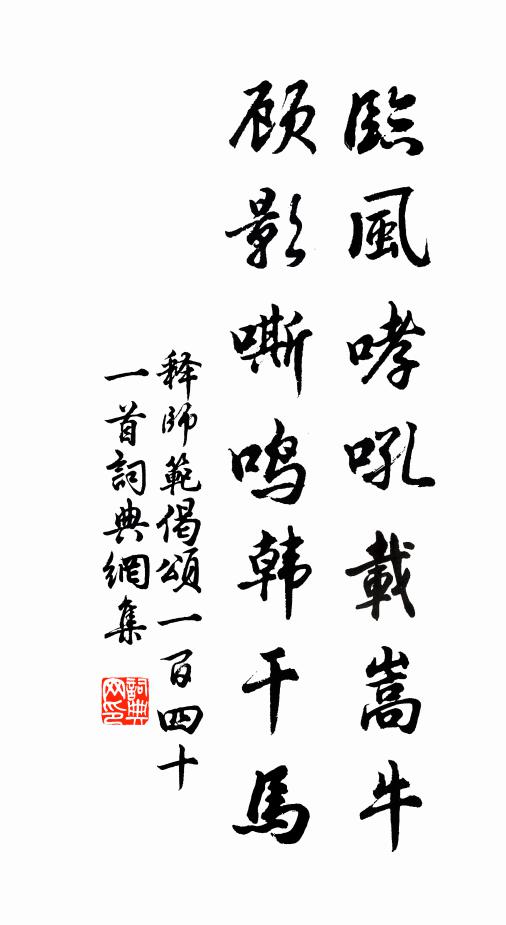 臨風哮吼載嵩牛
顾影嘶鸣韩干馬
释師範偈頌一百四十
一首詞典網集
詞典
网印